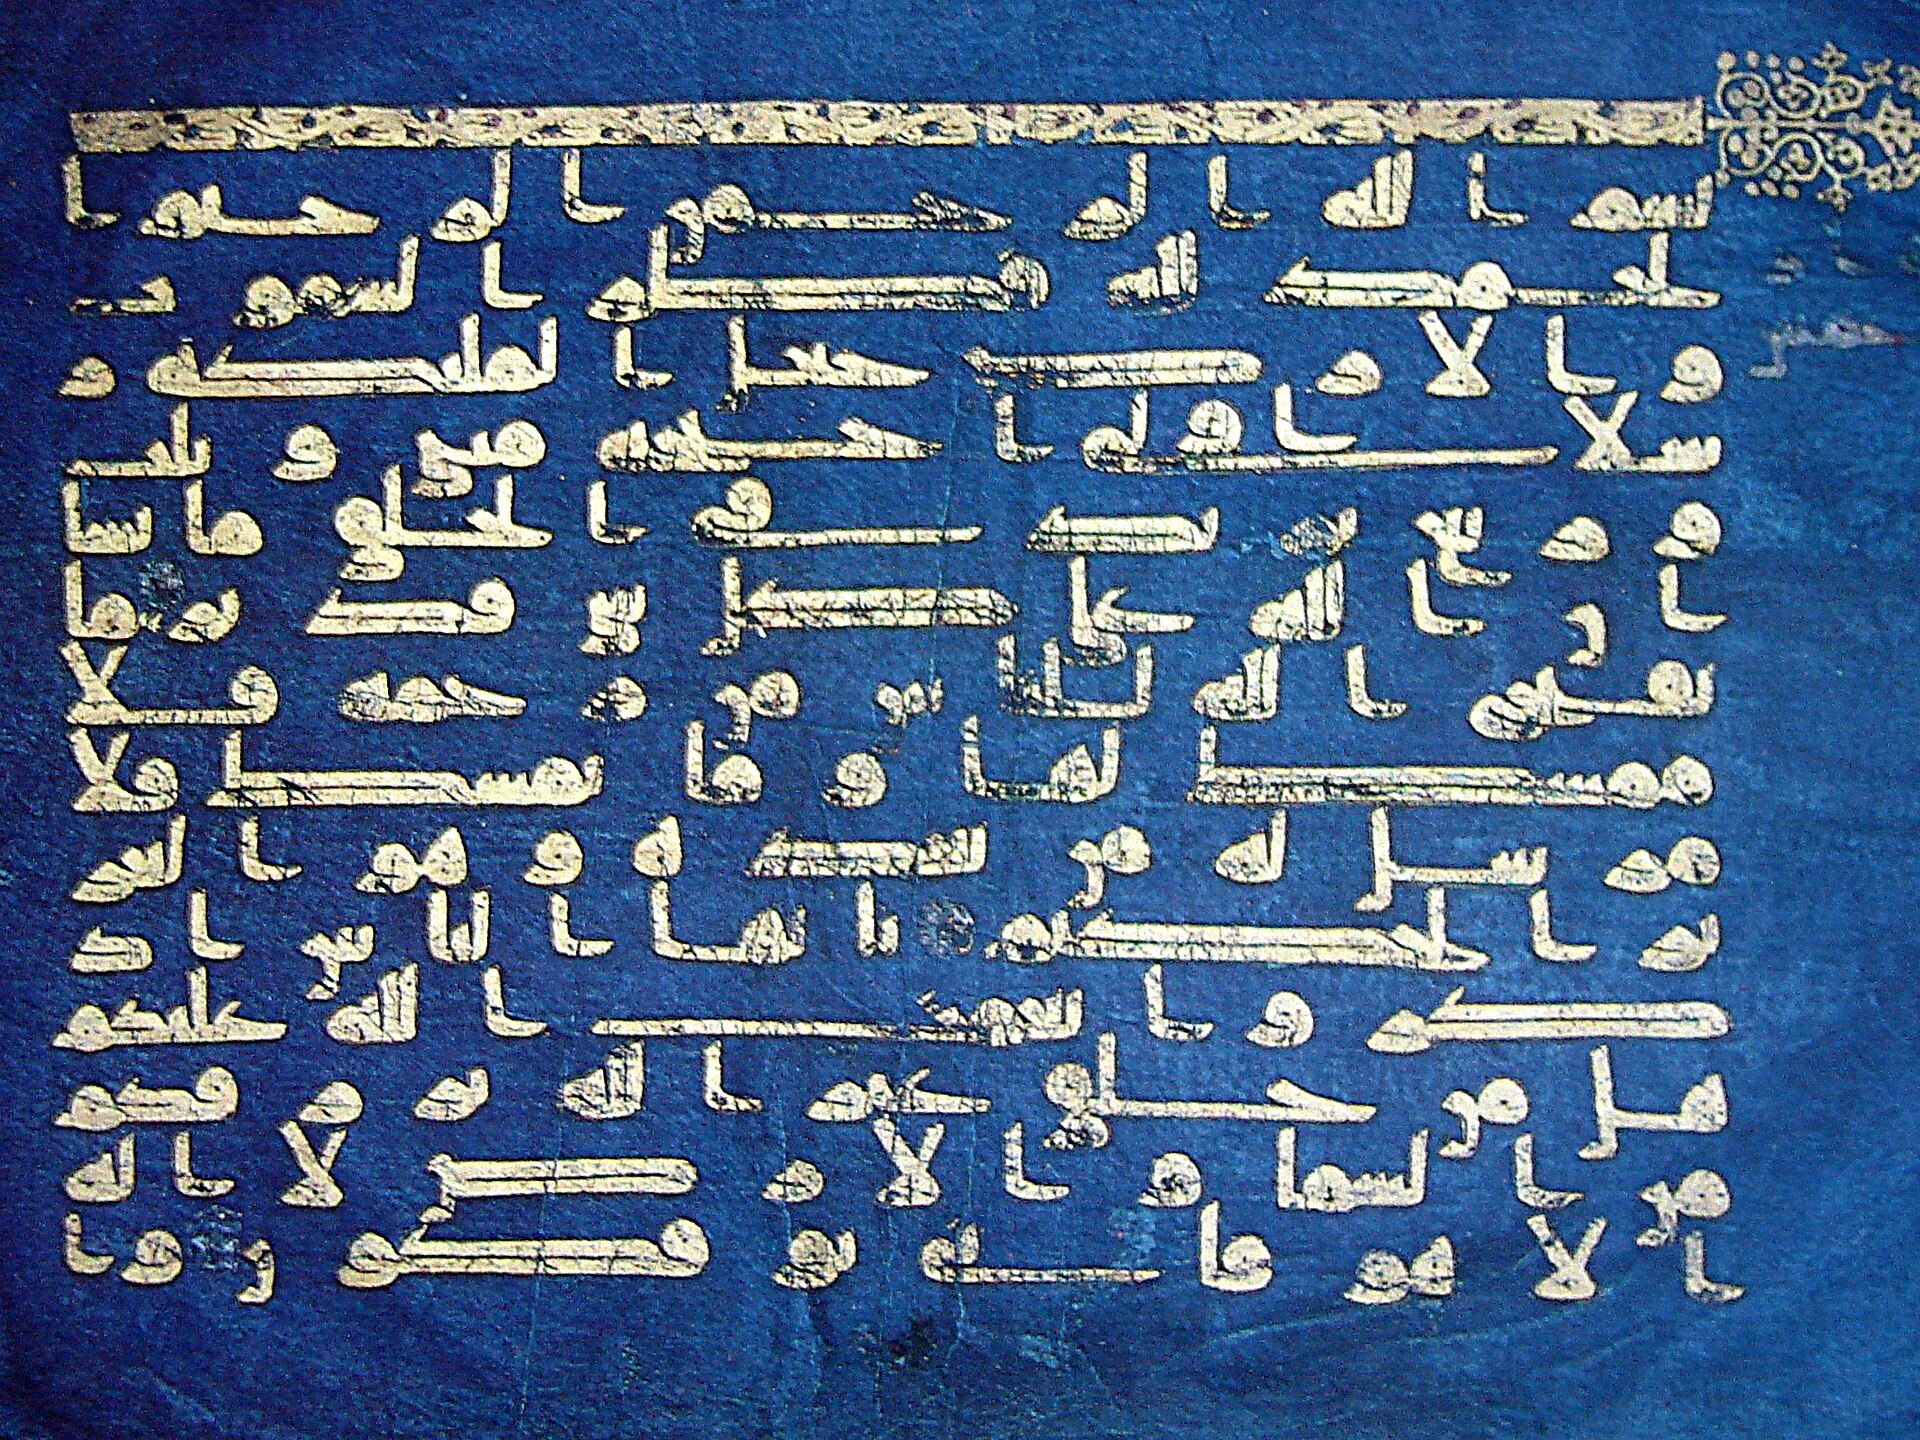 بسم الله الرحمن الرحيم ا
لحمد لله فطر السموت
و الارض جعل الملئكة ر
سلا اولى اجنحة مثنى و ثلث
و ربع يزيد في الخلق ما يشا
ان الله على كل شى قدير ما
يفتح الله للناس من رحمة فلا
ممسك لها و ما يمسك فلا
مرسل له من بعده و هو العز
يز الحكيم يايها الناس اذ
كروا نعمت الله عليكم
هل من خلق غير الله يرزقكم
من السما و الارض لا اله
الا هو فانى توفكون و ا